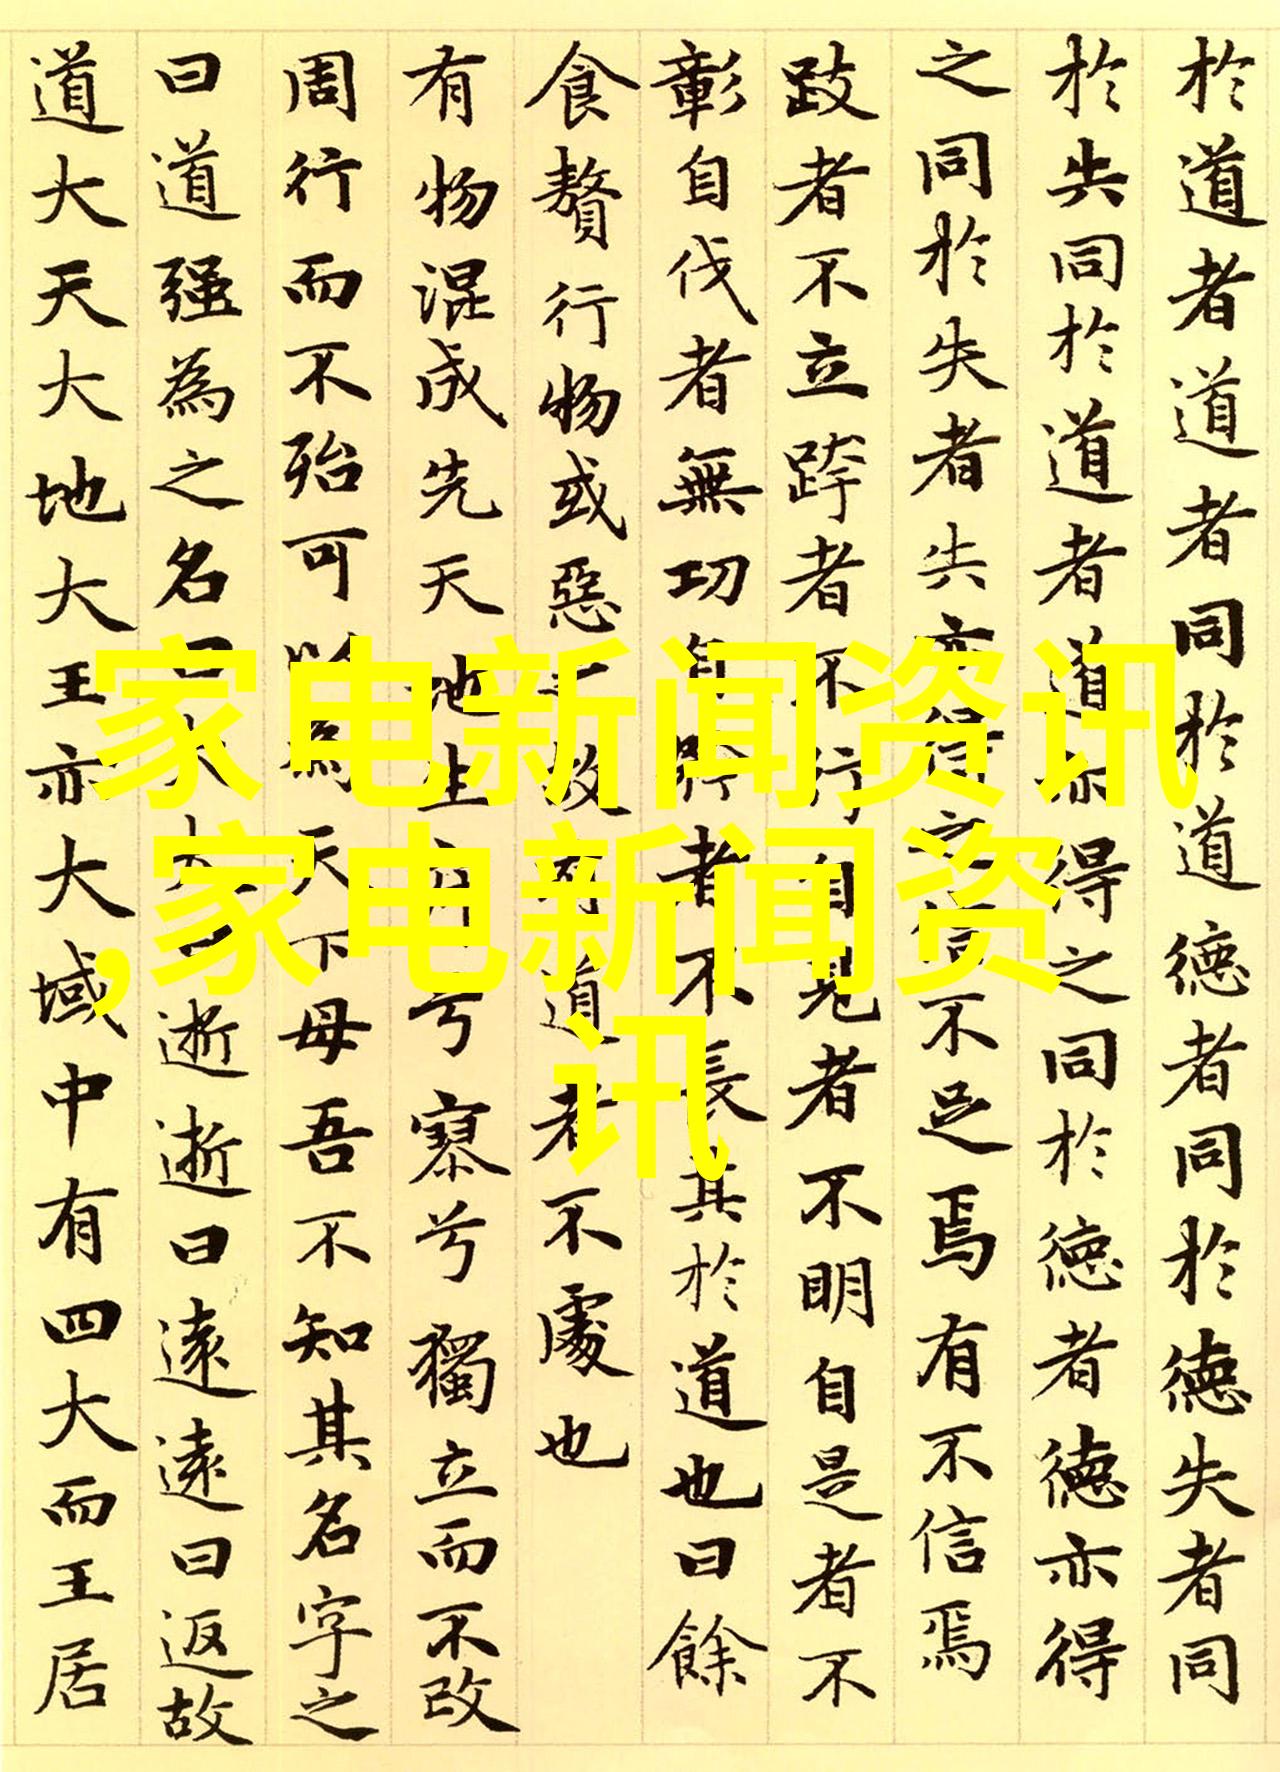 於道者道者同於道德者同於德失者同
於失同於道者道亦得之同於德者德亦得
之同於失者失亦得之信不足焉有不信焉
跂者不立跨者不行自見者不明自是者不
彰自伐者無功自矜者不長其於道也曰餘
食贅行物或惡之故有道者不處也
有物混成先天地生寂兮寥兮獨立而不改
周行而不殆可以為天下母吾不知其名字之
曰道强為之名曰大大曰逝逝曰遠遠曰返故
道大天大地大王亦大域中有四大而王居
家电新闻资讯
,家电新闻资
讯